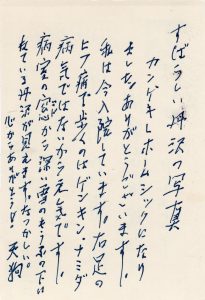 すばらしい丹沢の写真
カンゲキしホームシックになり
ました。ありがとうございます。
私は今入院しています。右足の
ヒフ病で歩くのはゲンキン・ナミダ
病気ではないからうえしきです。
病室の窓から深い雪の下に
ねている丹沢が見えます。なつかしい。
心からありがとう 天狗